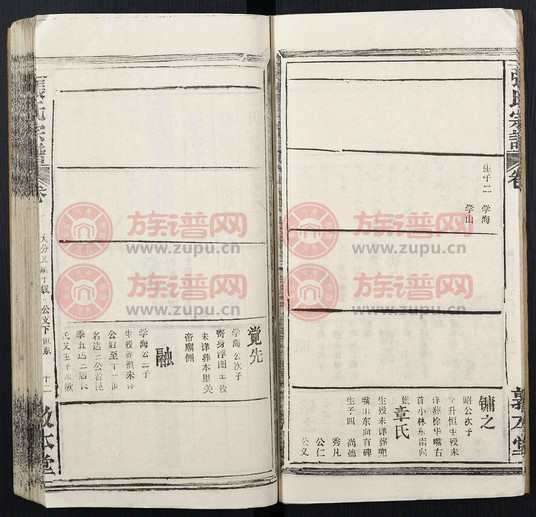 張氏宗譜
卷
敦本堂
生子二 学海
学山
镛之
昭公次子
字升恒生殁未
详葬徐华嘴右
首小林东南向
章氏
生殁未详葬兜
嘴山东向有碑
生子四 尚德
秀凡
公仁
公义
覚先
学海公次子
寄身浮图生殁
未详葬本里关
帝庙侧
融
学海公三子
生殁葬俱未详
張氏宗譜
卷
十二
敦本堂
族谱网
www.zupu.cn
族谱网
www.zupu.cn
族谱网
www.zupu.cn
族谱网
www.zupu.cn